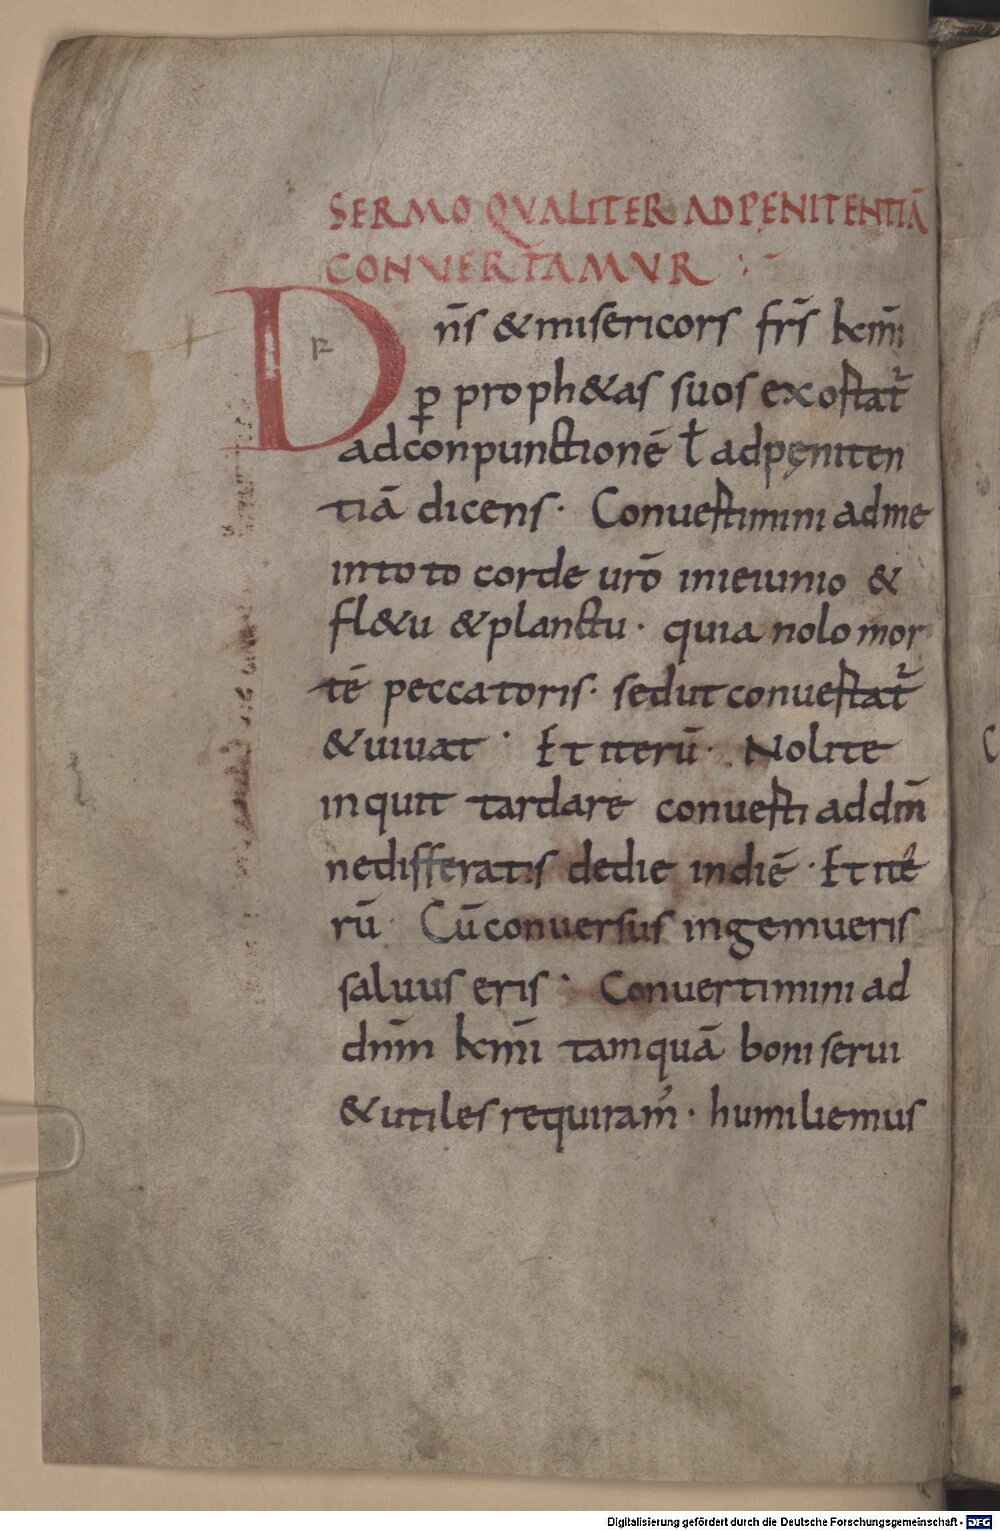 SERMO QVALITER AD PENITENTIĀ
CONVERTAMVR :-
Dn̄s & misericors fr̄s kcm̄i
ꝑ proph&as suos exortat᷑
ad conpunctionē ł ad pęniten
tiā dicens · Conuertimini ad me
in toto corde ur̄o in ieiunio &
fl&u & planctu · quia nolo mor
tē peccatoris · sed ut conuertat᷑
& uiuat · Et iterū · Nolite
inquit tardare conuerti ad dn̄m
ne differatis de die in diē · Et ite
rū · Cū conuersus ingemueris
saluus eris · Conuertimini ad
dn̄m kcm̄i tamquā boni serui
& utiles requiram᷒ · humiliemus
Digitalisierung gefördert durch die Deutsche Forschungsgemeinschaft - DFG